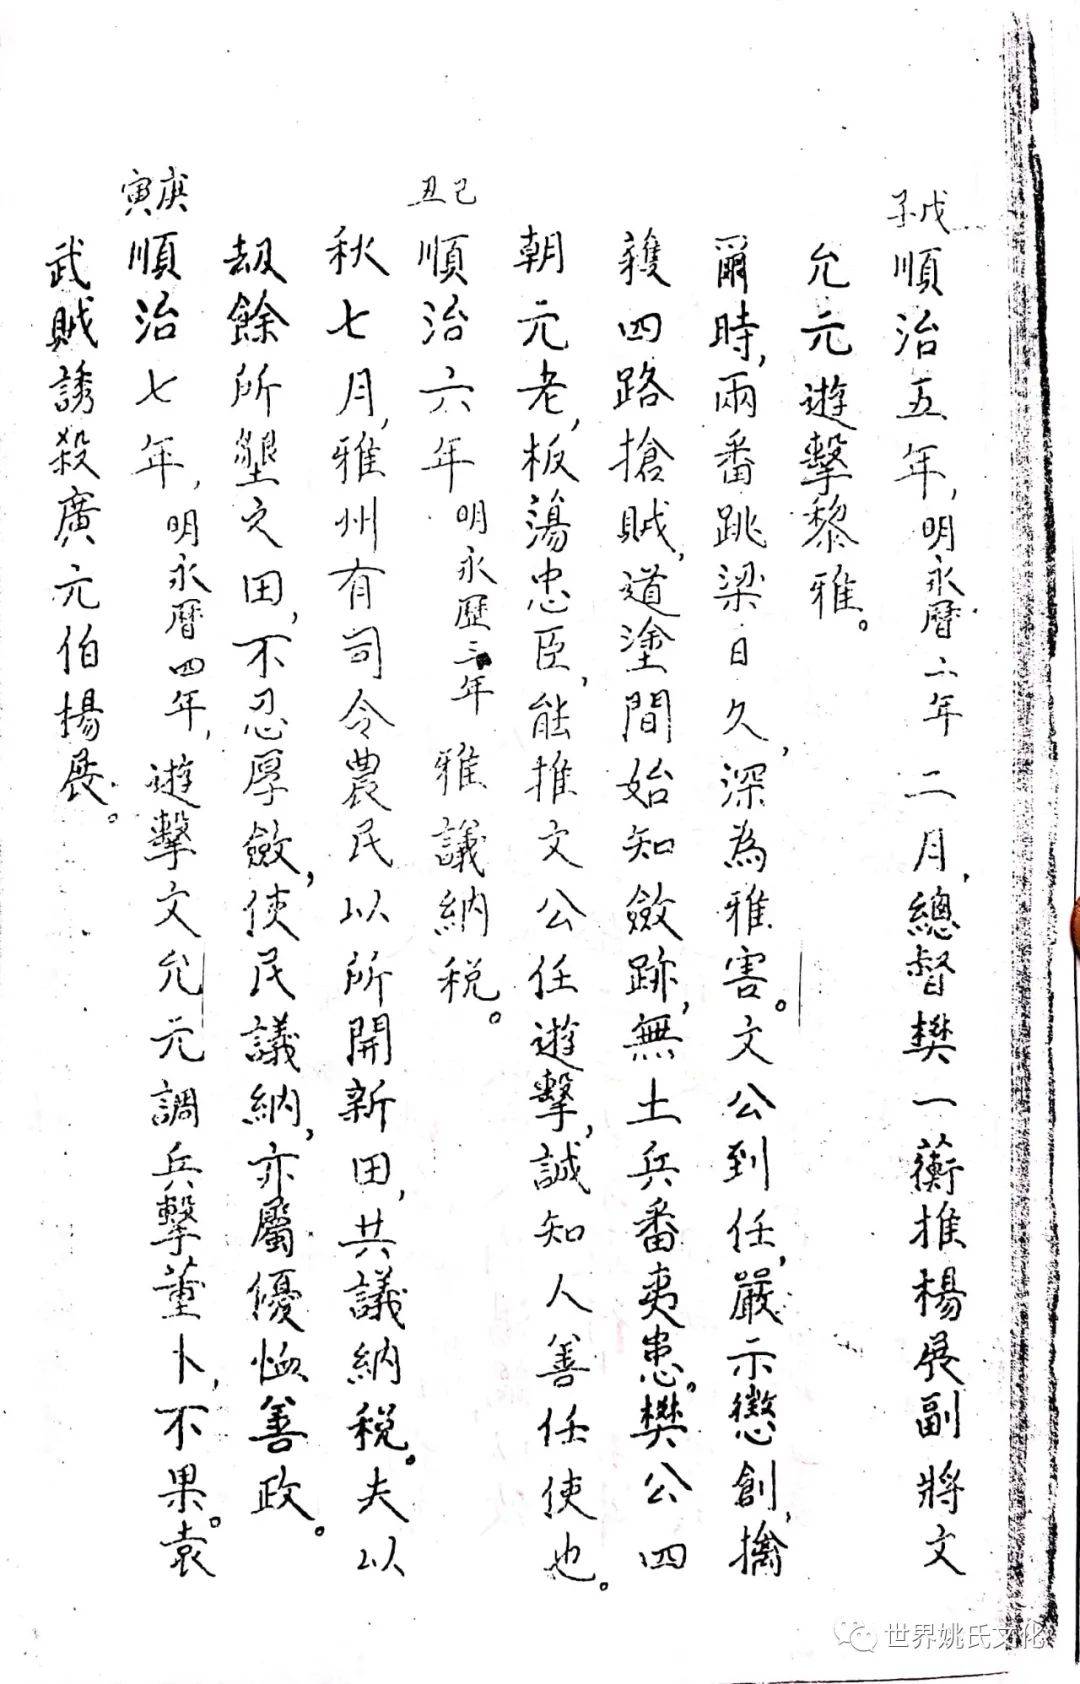 戊子
順治五年,明永曆二年二月,總督樊一蘅推楊展副將文
允元遊擊黎雅。
爾時,兩番跳梁日久,深為雅害。文公到任,嚴示懲創,擒
獲四路搶賊,道塗間始知斂跡,無土兵番夷患。樊公四
朝元老,板蕩忠臣,能推文公任遊擊,誠知人善任使也。
己丑
順治六年明永歷三年雅議納税。
秋七月,雅州有司令農民以所開新田,共議納税。夫以
刼餘所墾之田,不忍厚斂,使民議納,亦屬優恤善政。
庚寅
順治七年,明永曆四年,遊擊文允元調兵擊董卜,不果。袁
武賊誘殺廣元伯楊展。
世界姚氏文化